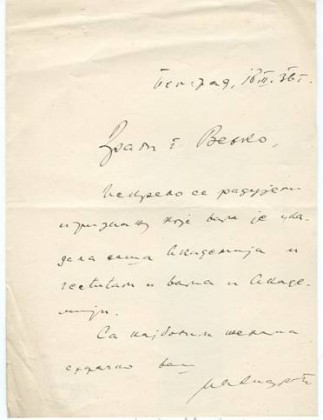 Београд, 18 II. 36 г.
Драги г. Вељко,
Искрено се радујем
признању које вам је ука-
зала наша Академија и
честитам и вама и Акаде-
мији.
Са најбољим жељама
срдачно ваш